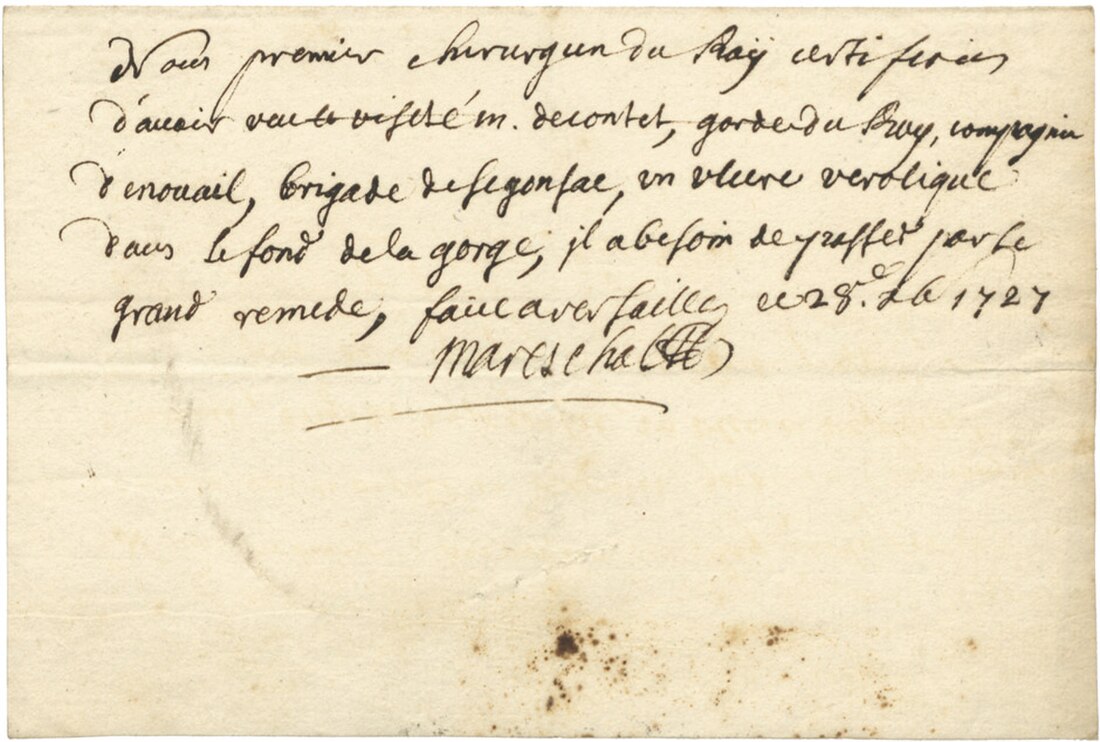 Nous premier chirurgien du Roy certifions
d'avoir veu et visité m. decontet, garde du Roy, compagnie
de nouail, brigade de segonsac, un ulcere verolique
dans le fond de la gorge, il a besoin de passer par le
grand remede, faict a versailles ce 28.e 1727
Mareschal